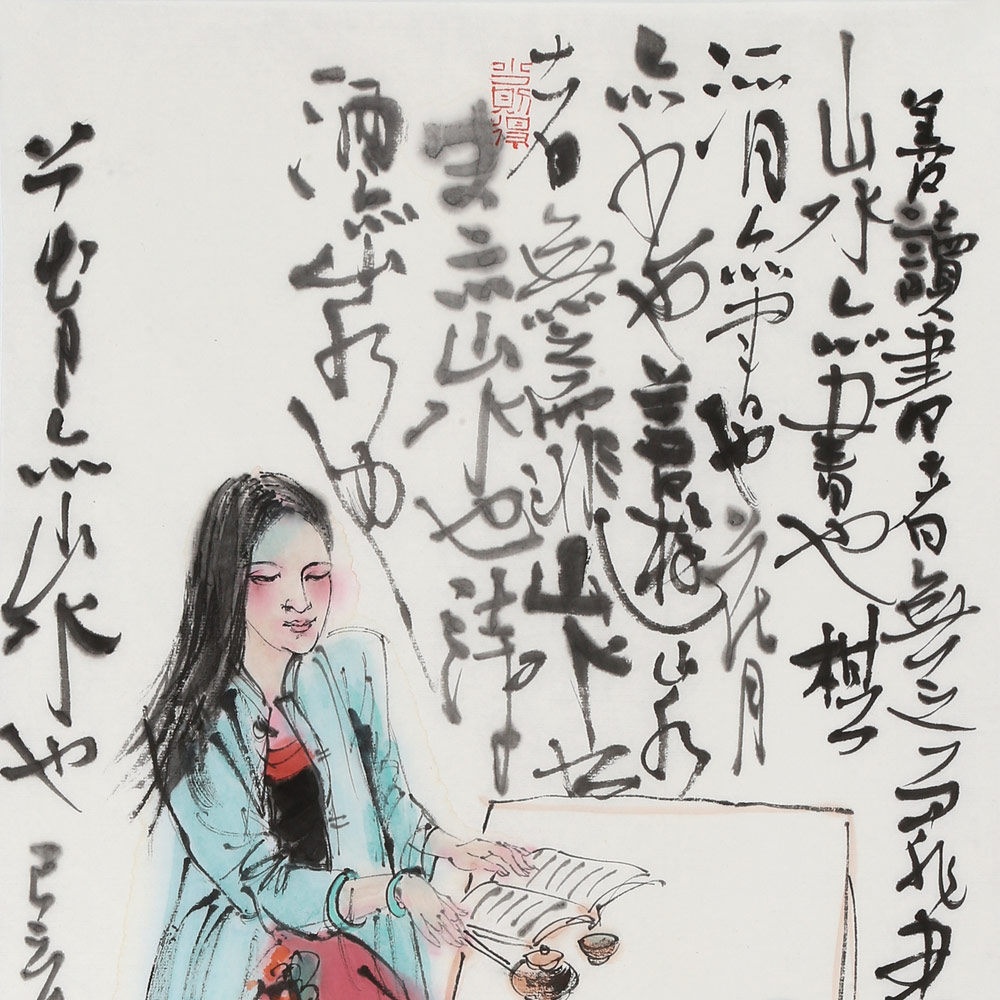 善讀書者無之而非書
山水亦書也棋
酒亦書也花月
亦書也善遊山水
者無之而非山水書
史亦山水也詩
酒亦山水也
花月亦山水也
己亥